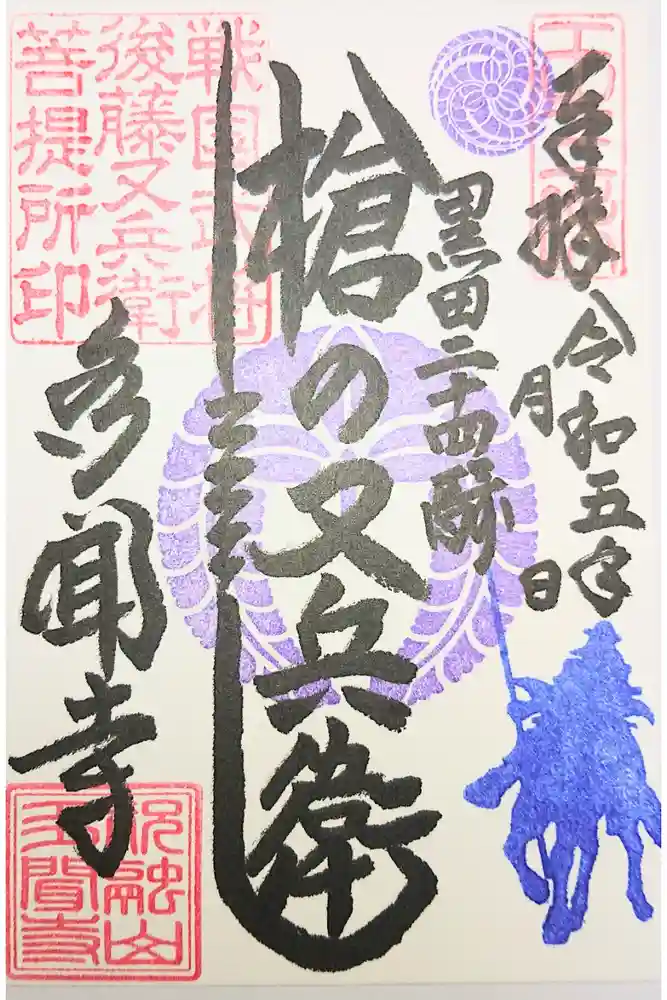 奉拝 令和五年
月 日
黒田二十四騎
槍の又兵衛
多聞寺
戦国武将
後藤又兵衛
菩提所印
祝融山
多聞寺